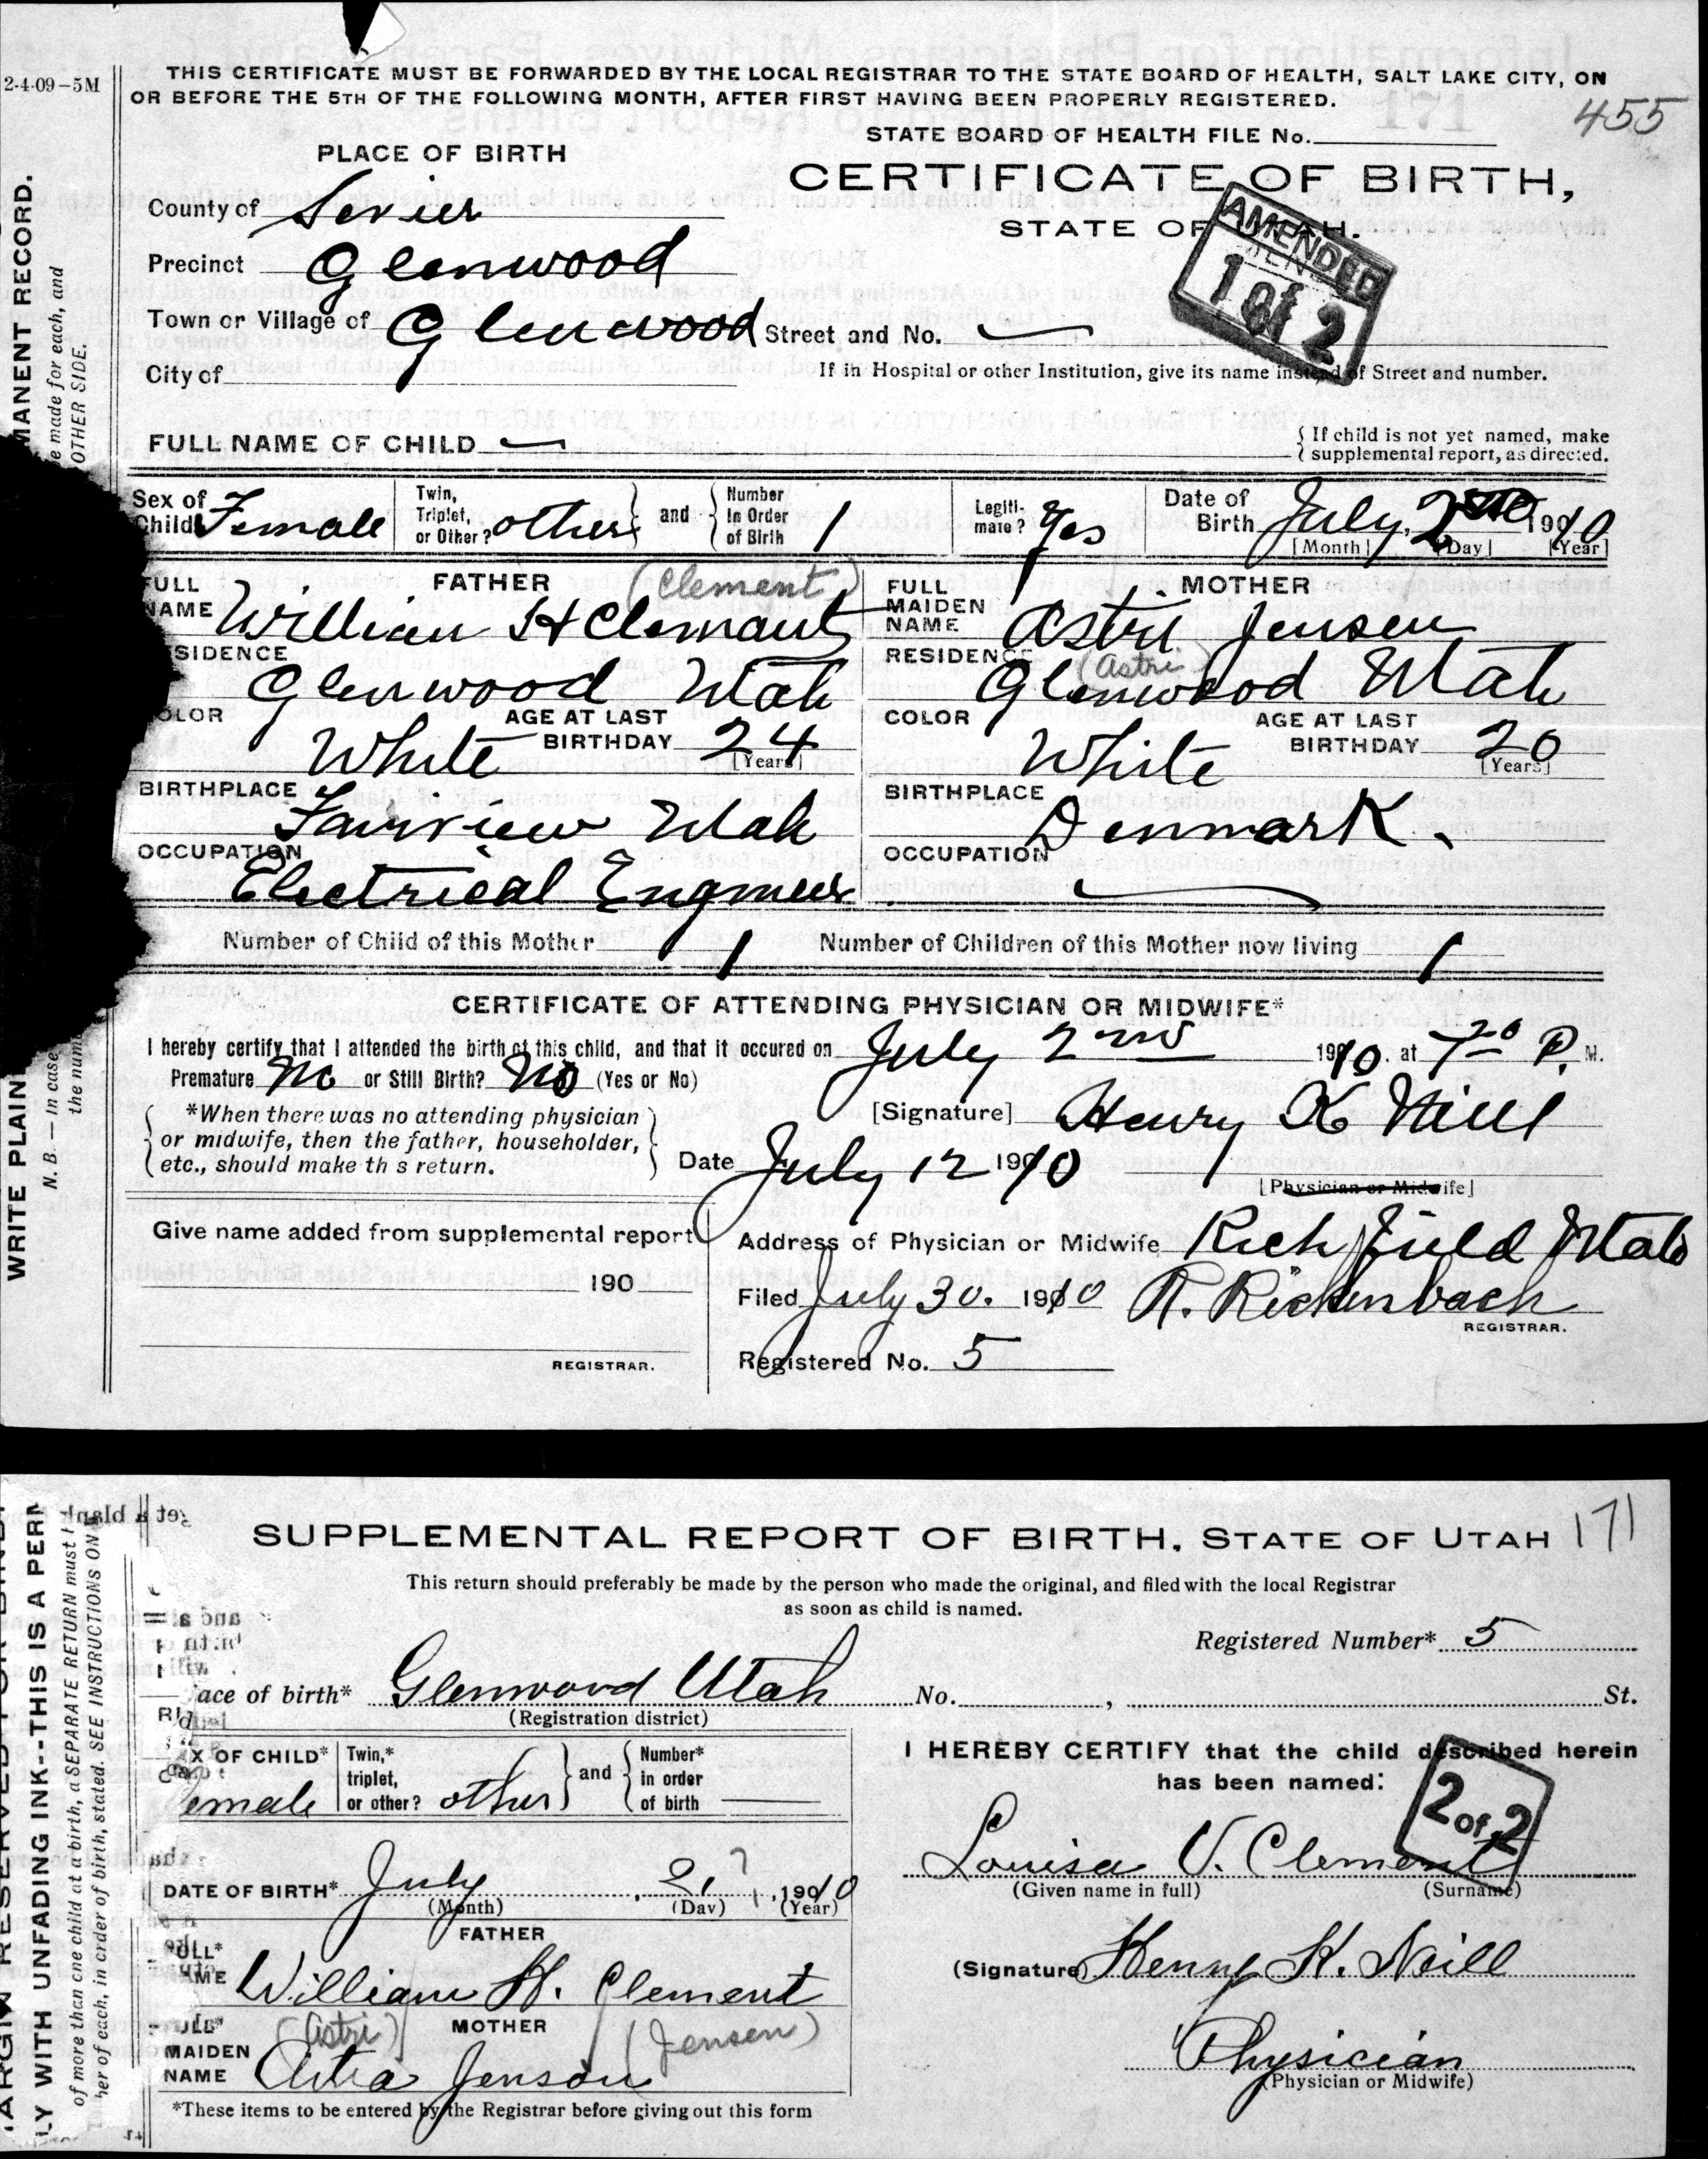 2-4-09-5M
THIS CERTIFICATE MUST BE FORWARDED BY THE LOCAL REGISTRAR TO THE STATE BOARD OF HEALTH, SALT LAKE CITY, ON
OR BEFORE THE 5TH OF THE FOLLOWING MONTH, AFTER FIRST HAVING BEEN PROPERLY REGISTERED.
455
STATE BOARD OF HEALTH FILE No.
PLACE OF BIRTH
CERTIFICATE OF BIRTH,
STATE OF UTAH.
AMENDED
1 of 2
County of Sevier
Precinct Glenwood
Town or Village of Glenwood Street and No. —
City of
If in Hospital or other Institution, give its name instead of Street and number.
FULL NAME OF CHILD —
{ If child is not yet named, make
supplemental report, as directed.
Sex of Child Female
Twin, Triplet, or Other? other } and { Number In Order of Birth 1
Legiti-mate? Yes
Date of Birth July 2nd 1910
[Month] [Day] [Year]
FULL NAME FATHER (Clement)
William H Clemant
FULL MAIDEN NAME MOTHER
Astri Jensen
RESIDENCE (Astri)
ESIDENCE
Glenwood Utah
Glenwood Utah
OLOR White AGE AT LAST BIRTHDAY 24 [Years]
COLOR White AGE AT LAST BIRTHDAY 20 [Years]
BIRTHPLACE Fairview Utah
BIRTHPLACE Denmark.
OCCUPATION Electrical Engineer
OCCUPATION —
Number of Child of this Mother 1 Number of Children of this Mother now living 1
CERTIFICATE OF ATTENDING PHYSICIAN OR MIDWIFE*
I hereby certify that I attended the birth of this child, and that it occured on July 2nd 1910. at 7 20 P. M.
Premature No or Still Birth? No (Yes or No)
{ *When there was no attending physician
or midwife, then the father, householder,
etc., should make th s return. }
[Signature] Henry K Neill
Date July 12 1910
[Physician or Midwife]
Give name added from supplemental report
190
REGISTRAR.
Address of Physician or Midwife Richfield Utah
Filed July 30. 1910 R. Rickenbach
REGISTRAR.
Registered No. 5
WRITE PLAIN
MANENT RECORD.
N. B. — In case
the num
e made for each, and
OTHER SIDE.
SUPPLEMENTAL REPORT OF BIRTH. STATE OF UTAH 171
This return should preferably be made by the person who made the original, and filed with the local Registrar
as soon as child is named.
Registered Number* 5
ace of birth* Glenwood Utah No. , St.
(Registration district)
X OF CHILD* emale
Twin,* triplet, or other? other } and { Number* in order of birth —
I HEREBY CERTIFY that the child described herein
has been named:
2 of 2
Louisa V. Clement
(Given name in full) (Surname)
DATE OF BIRTH* July 2, ? 1910
(Month) (Day) (Year)
FATHER
ULL* AME William H. Clement
(Signature) Henry K. Neill
(Astri) MOTHER (Jensen)
MAIDEN NAME Astra Jenson
Physician
(Physician or Midwife)
*These items to be entered by the Registrar before giving out this form
LY WITH UNFADING INK--THIS IS A PERM
of more than one child at a birth, a SEPARATE RETURN must
her of each, in order of birth, stated. SEE INSTRUCTIONS ON